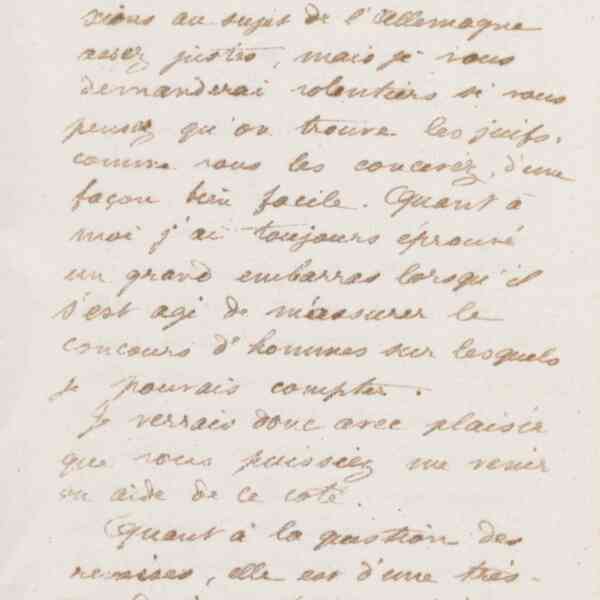 xions au sujet de l'Allemagne
assez justes, mais je vous
demanderai volontiers si vous
pensez qu'on trouve les juifs,
comme vous les concevez, d'une
façon bien facile. Quant à
moi j'ai toujours éprouvé
un grand embarras lorsqu'il
s'est agi de m'assurer le
concours d'hommes sur lesquels
je pouvais compter.
Je verrais donc avec plaisir
que vous puissiez me venir
en aide de ce coté.
Quant à la question des
remises, elle est d'une très-